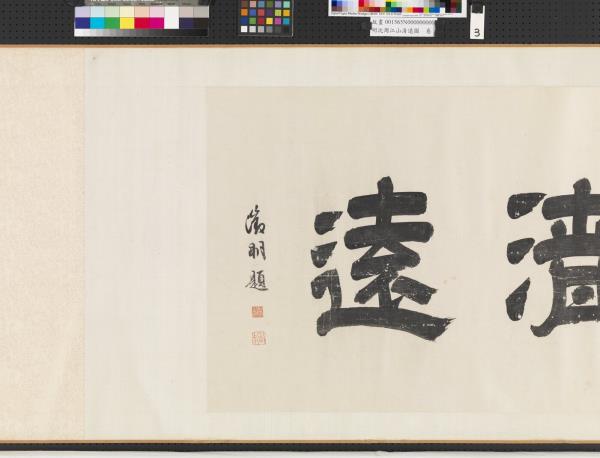 清遠
徵明題
故畫 001565N000000000
明沈周江山清遠圖 卷
3